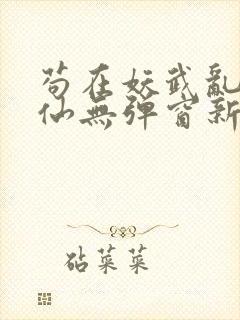 苟在妖武亂
仙無彈窗新
砧菜菜